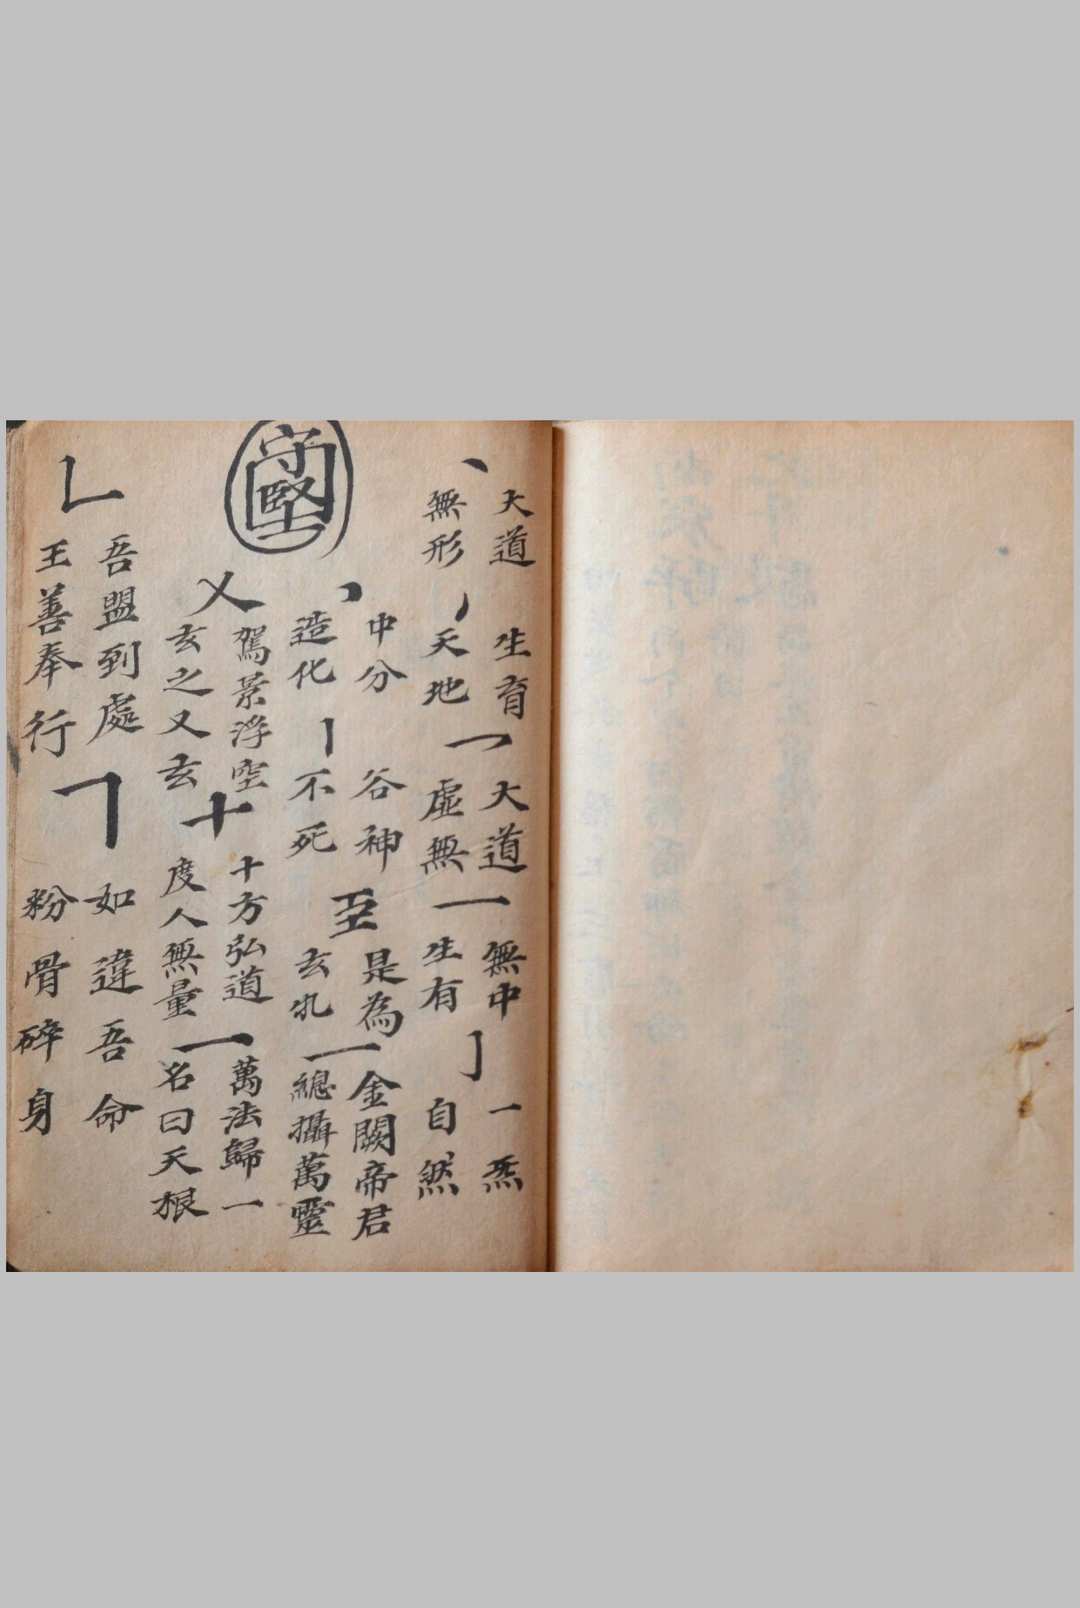 大道
無形
生育
天地
大道
虛無
無中
生有
一炁
自然
中分
造化
谷神
不死
是為
玄牝
金闕帝君
總攝萬靈
駕景浮空
玄之又玄
十方弘道
度人無量
萬法歸一
名曰天根
吾盟到處
王善奉行
如違吾命
粉骨碎身